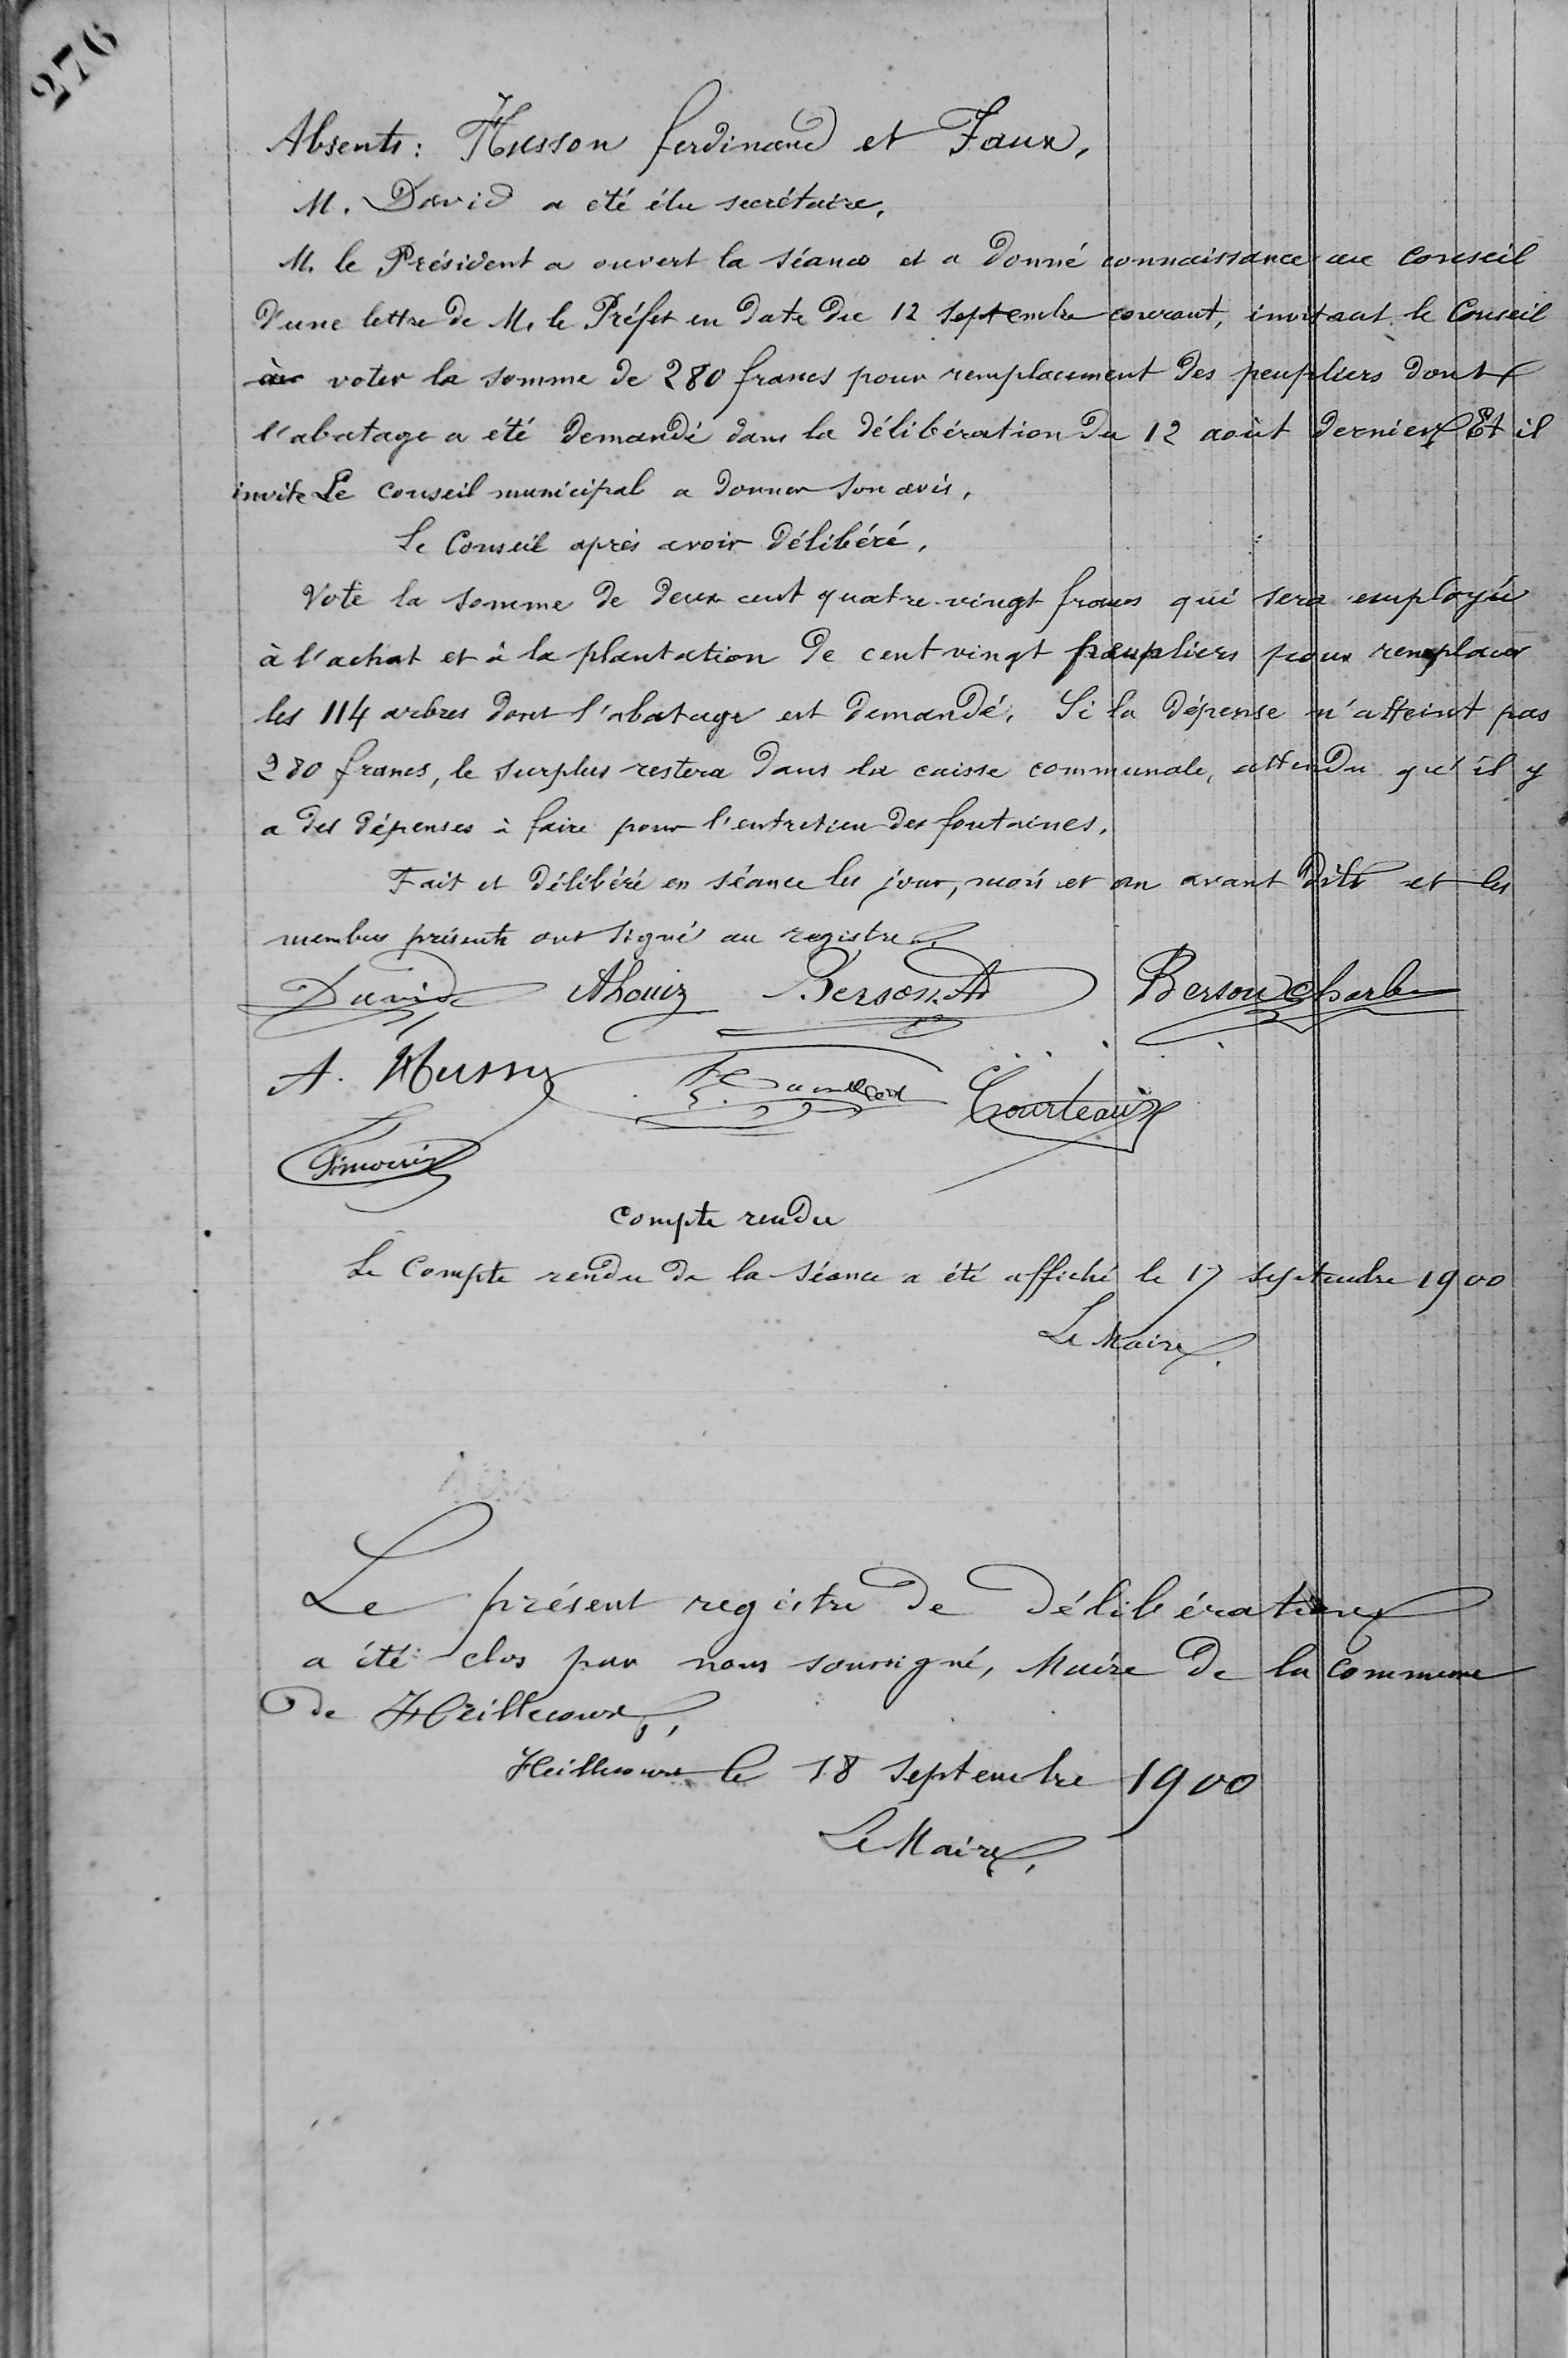 276
Absents: Husson ferdinand et Faux,
M. David a été élu secrétaire,
M. le Président a ouvert la séance et a donné connaissance au Conseil
d'une lettre de M. le Préfet en date du 12 septembre courant, invitant le Conseil
à voter la somme de 280 francs pour remplacement des peupliers dont
l'abatage a été demandé dans la délibération du 12 août dernier Et il
invite Le conseil municipal a donner son avis,
Le Conseil après avoir délibéré,
Vote la somme de deux cent quatre-vingt francs qui sera employée
à l'achat et à la plantation de cent vingt peupliers pour remplacer
les 114 arbres dont l'abatage est demandé. Si la dépense n'atteint pas
280 francs, le surplus restera dans la caisse communale, attendu qu'il y
a des dépenses à faire pour l'entretien des fontaines.
Fait et délibéré en séance les jour, mois et an avant dits et les
membres présents ont signé au registre.
David Berson Ad Berson Charles
A. Husson Courteaux
compte rendu
Le Compte rendu de la séance a été affiché le 17 septembre 1900
Le Maire
Le présent registre de délibérations
a été clos par nous soussigné, Maire de la Commune
de Heillecourt,
Heillecourt le 18 septembre 1900
Le Maire,